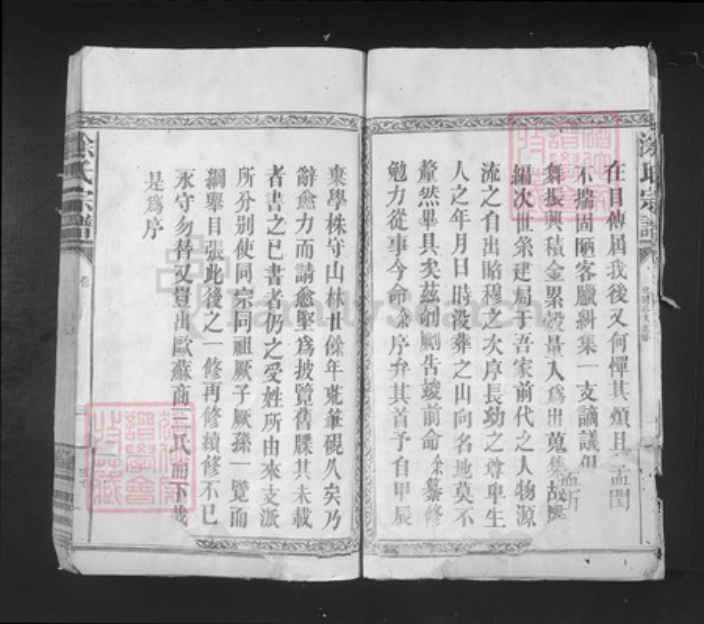 在目傳屆我後又何憚其煩且孟閏
不揣固陋客臘糾集一支謫議
孟昕
舞振興積金累穀量入為出蒐集故
編次世系建局于吾家前代之人物源
流之自出昭穆之次序長幼之尊卑生
人之年月日時沒葬之山向名地莫不
釐然畢具矣茲創劂告竣前命余纂修
勉力從事今命余序弁其首予自甲辰
棄學株守山林廿餘年荒筆硯久矣乃
辭愈力而請愈堅為披覽舊牒其未載
者書之已書者仍之受姓所由來支派
所分別使同宗同祖厥子厥孫一覽而
綱舉目張此後之一修再修續修不已
永守勿替又豈出歐蘇商王氏而下哉
是為序
涂氏宗譜
卷
涂氏宗譜
FamilySearch